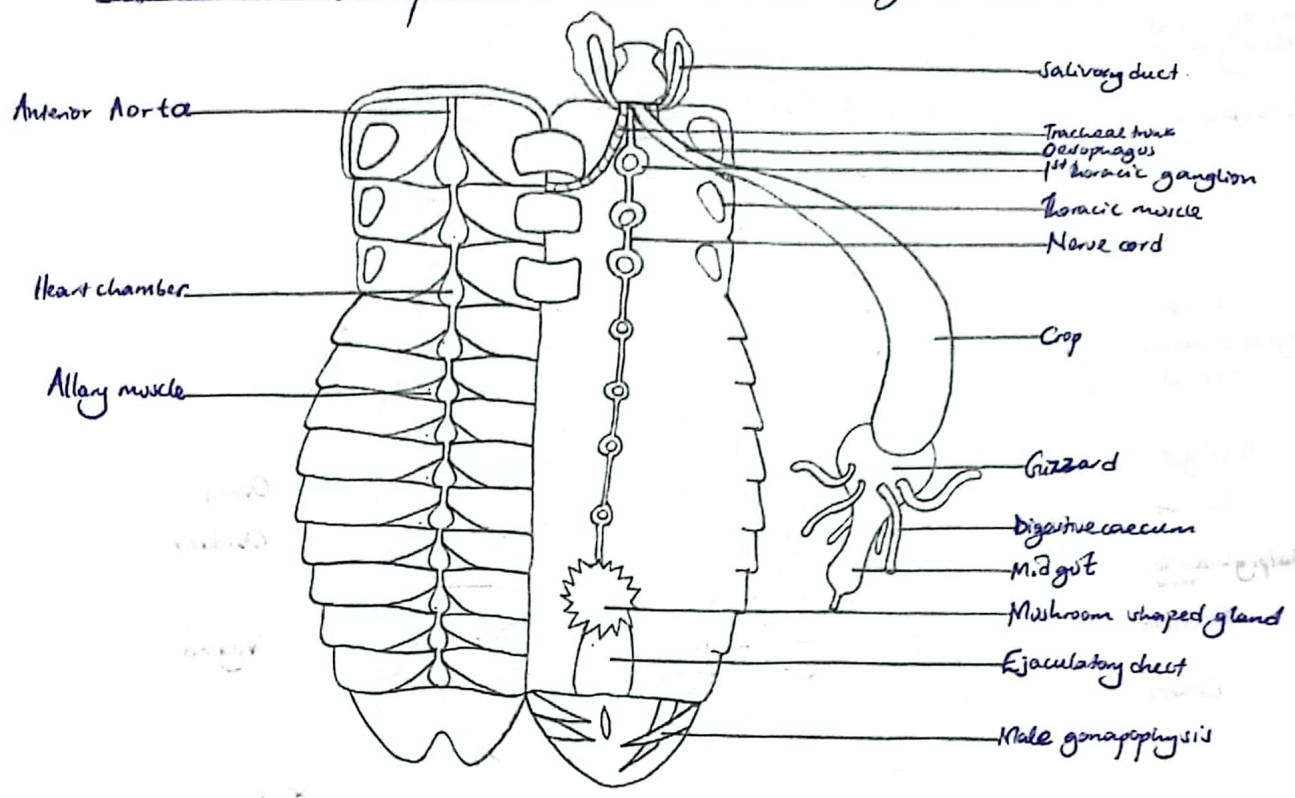 Anterior Aorta
Heart chamber
Allary muscle
Salivary duct.
Tracheal trunk
Oesophagus
1st thoracic ganglion
Thoracic muscle
Nerve cord
Crop
Gizzard
Digestive caecum
Midgut
Mushroom shaped gland
Ejaculatory duct
Male gonapophysis